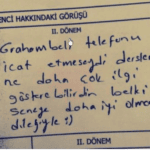 ENCİ HAKKINDAKİ GÖRÜŞÜ
II. DÖNEM
Grahambell telefonu
icat etmeseydi dersler
ne daha çok ilgi
göstere bilirdin belki
Seneye daha iyi olman
dileğiyle :)
II. DÖNEM